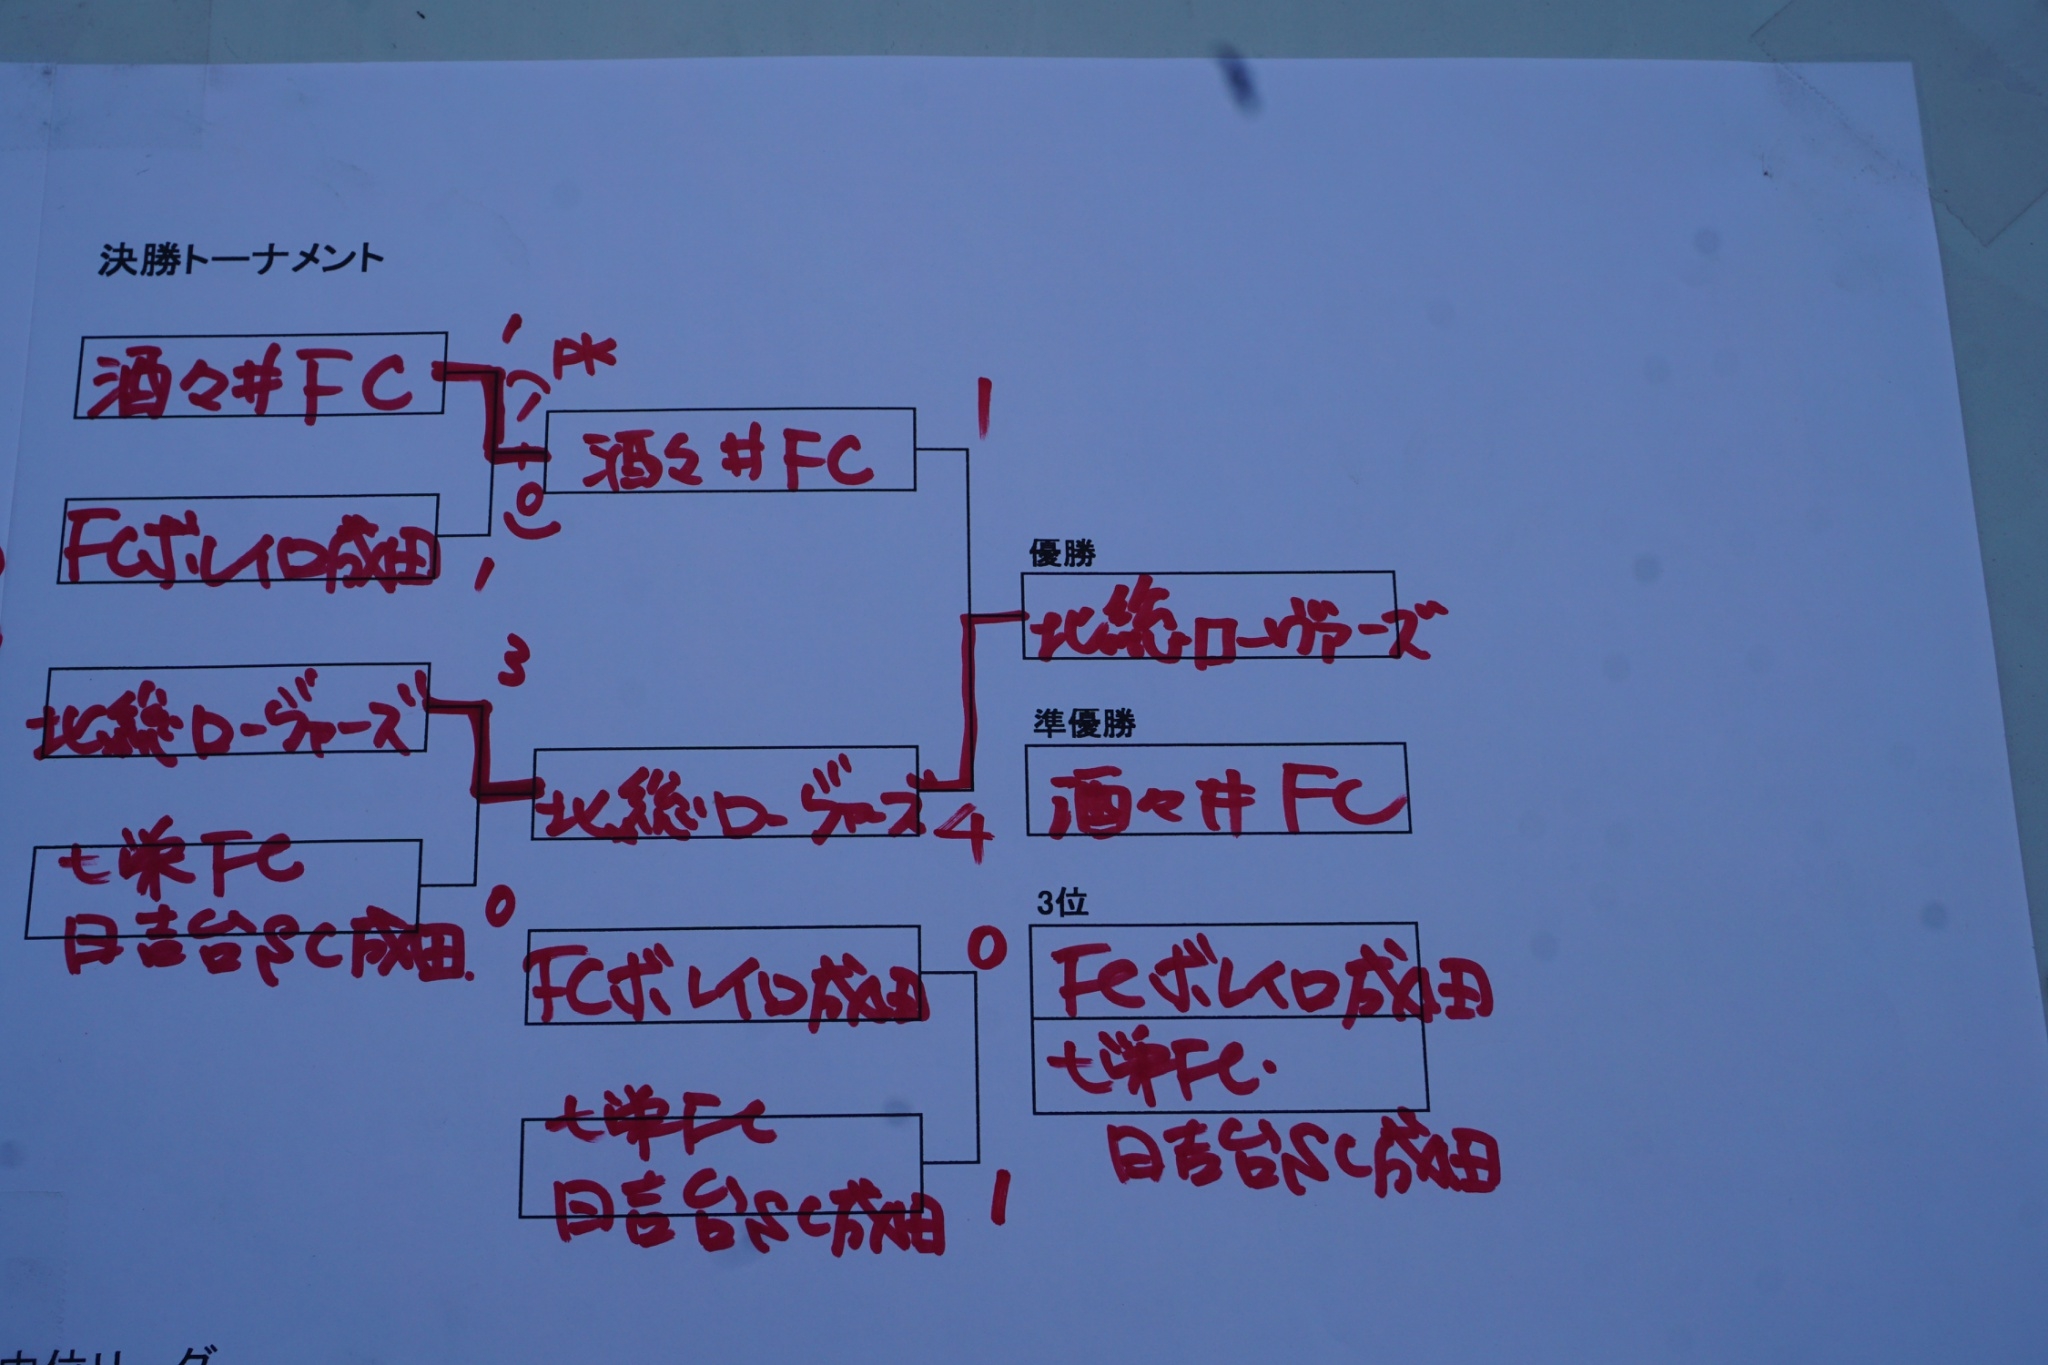 決勝トーナメント
酒々井FC
1
PK
(1
+
0)
酒々井FC
1
FCボレイロ成田
1
優勝
北総ローヴァーズ
北総ローヴァーズ
3
準優勝
酒々井FC
北総ローヴァーズ
4
七栄FC
日吉台SC成田
0
3位
FCボレイロ成田
0
FCボレイロ成田
七栄FC
日吉台SC成田
七栄FC
日吉台SC成田
1
中位リーグ